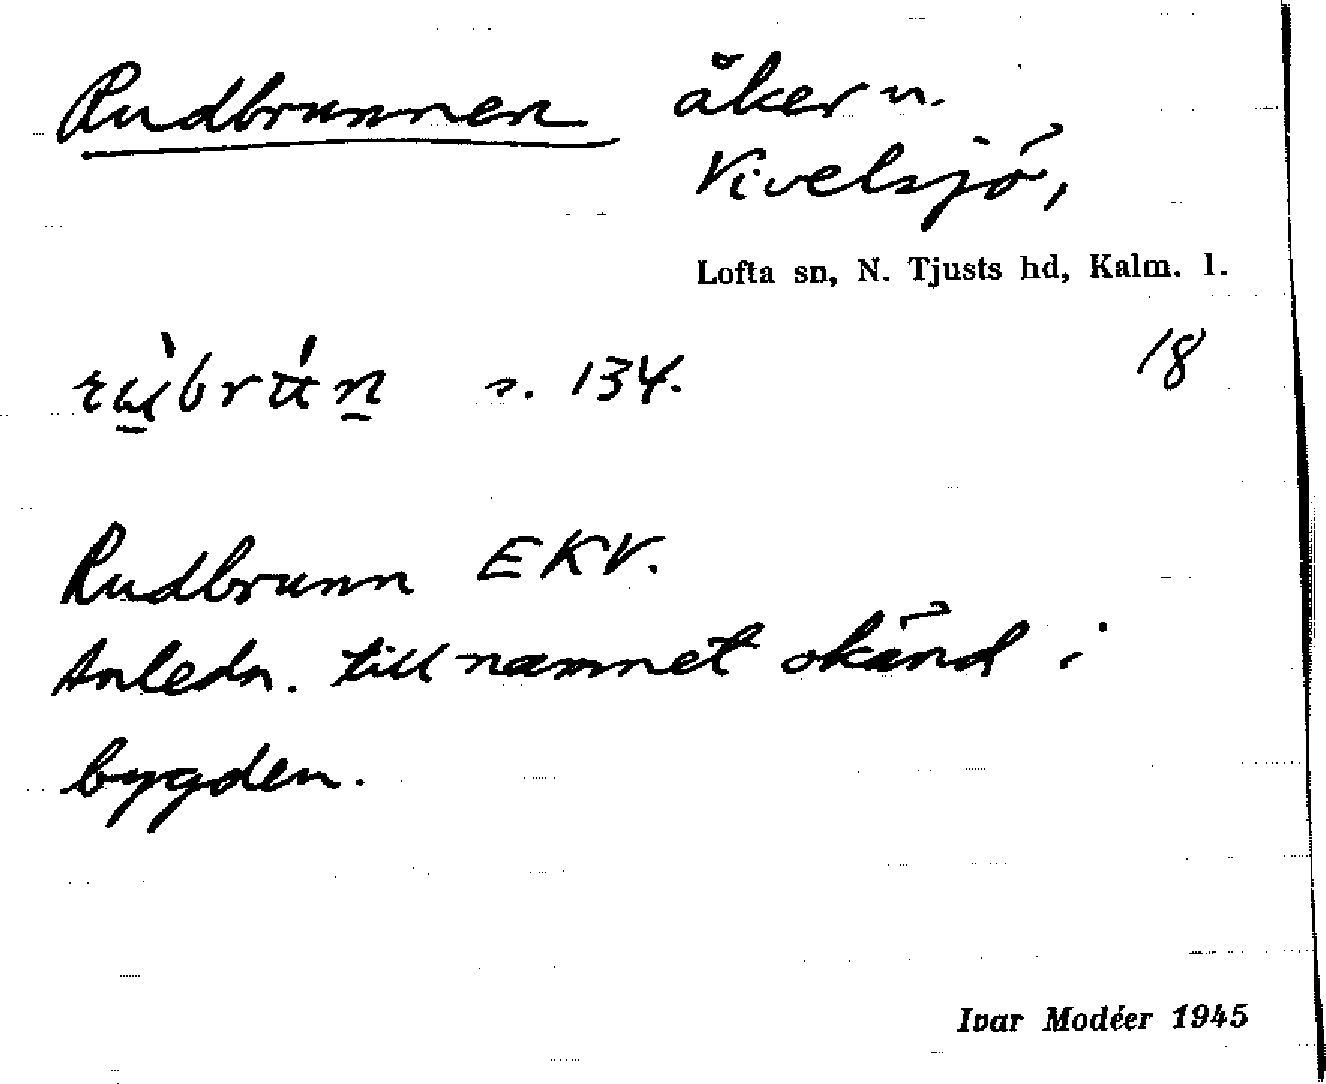 Rudbrunnen åker n.
Vivelsjö,
Lofta sn, N. Tjusts hd, Kalm. l.
s. 134. 18
Rudbrunn EKV.
Anledn. till namnet okänd i
bygden.
Ivar Modéer 1945